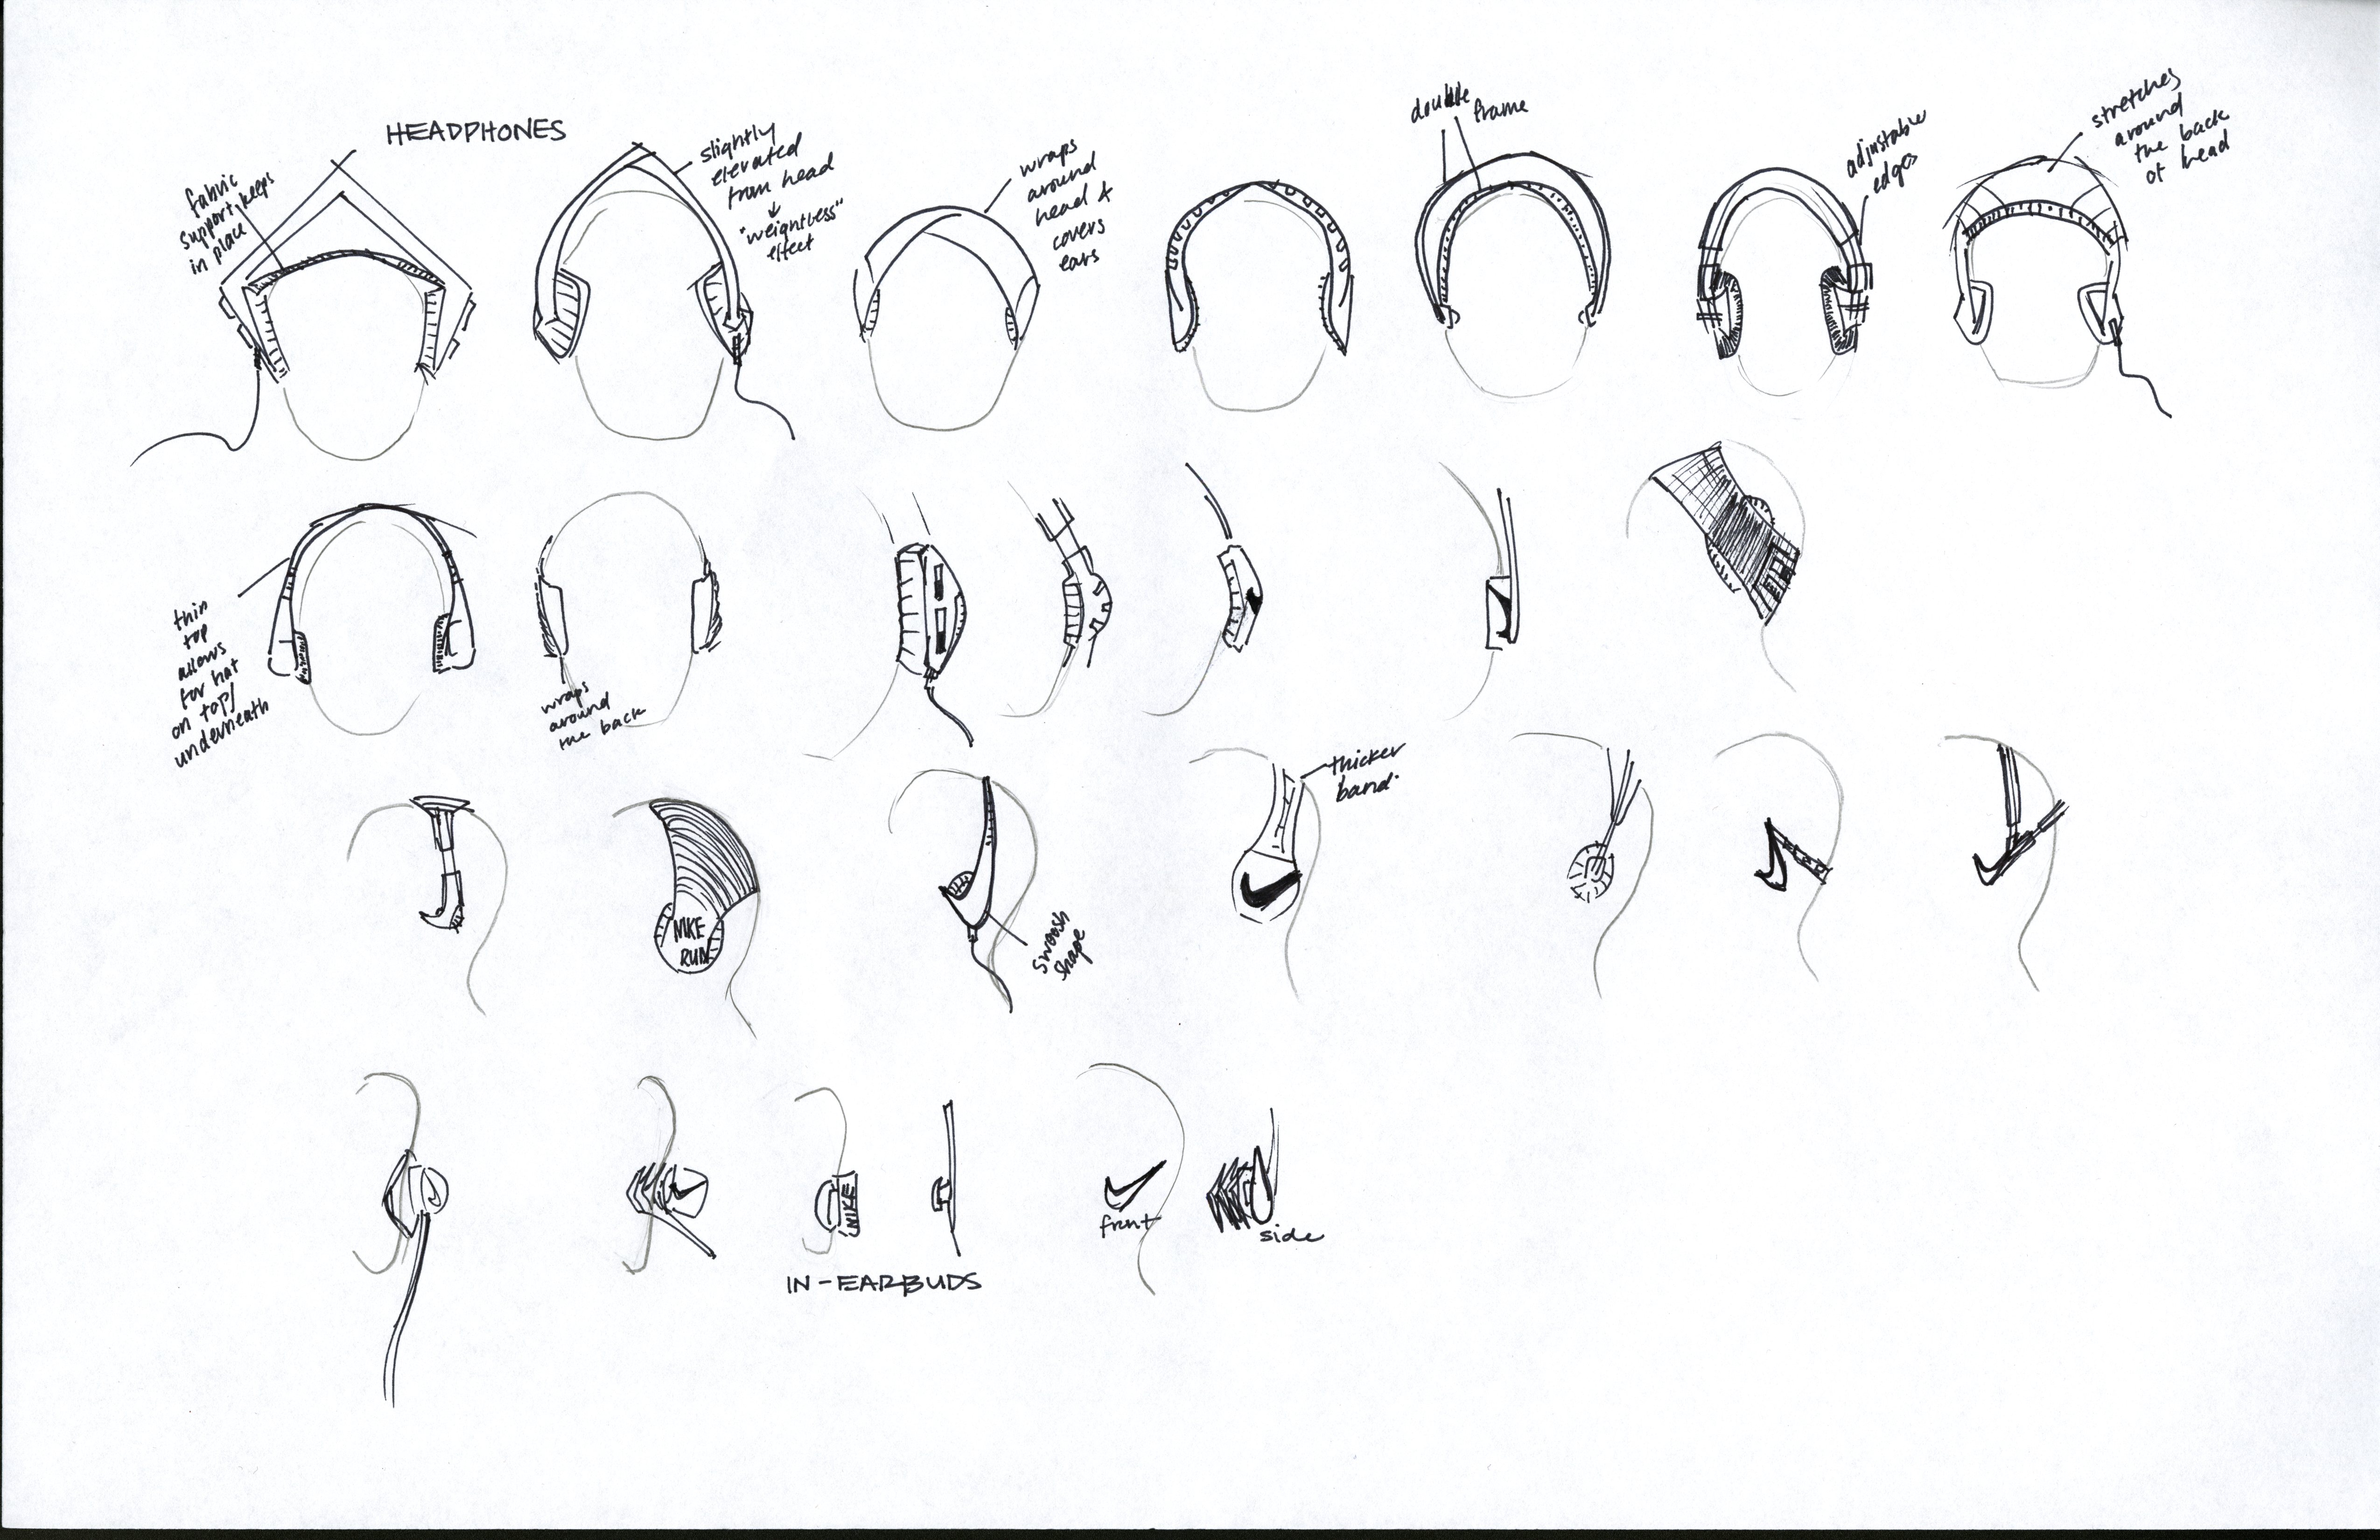 HEADPHONES
fabric
support, keeps
in place
slightly
elevated
from head
↓
"weightless"
effect
wraps
around
head &
covers
ears
double frame
adjustable
edges
stretches
around
the back
of head
thin
top
allows
for hat
on top/
underneath
wraps
around
the back
NIKE
RUN
swoosh
shape
thicker
band.
NIKE
IN-EARBUDS
front
side